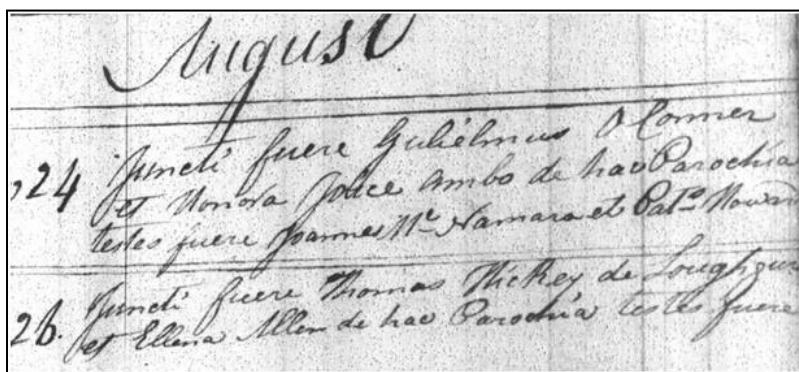 August
24 Juncti fuere Gulielmus O Conner
et Honora Joice ambo de hac Parochia
testes fuere Joannes Mc Namara et Pato
26. Juncti fuere Thomas Hickey de
et Ellena Allen de hac Parochia testes fuere